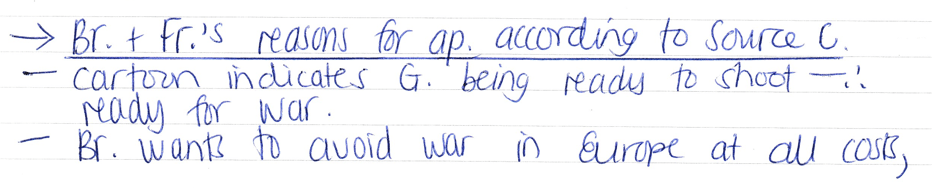 → Br. + Fr.'s reasons for ap. according to Source C.
– cartoon indicates G. being ready to shoot – ∴
ready for war.
– Br. wants to avoid war in Europe at all costs,